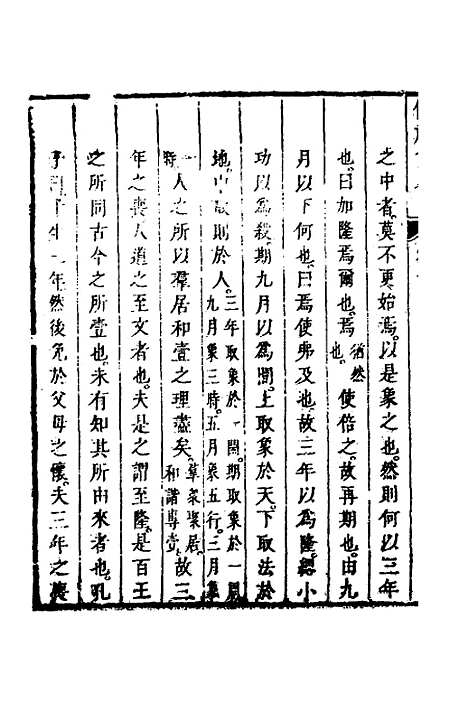 之中者。莫不更始焉。以是象之也。然則何以三年
也。曰加隆焉爾也。焉猶然也。使倍之。故再期也。由九
月以下何也。曰焉使弗及也。故三年以爲隆。緦小
功以爲殺。期九月以爲間。上取象於天。下取法於
地。中取則於人。三年取象於一閏。期取象於一周。九月象三時。五月象五行。三月象
一時。人之所以羣居和壹之理盡矣。羣眾聚居。和諧專壹。故三
年之喪。人道之至文者也。夫是之謂至隆。是百王
之所同古今之所壹也。未有知其所由來者也。孔
子曰。子生三年然後免於父母之懷。夫三年之喪